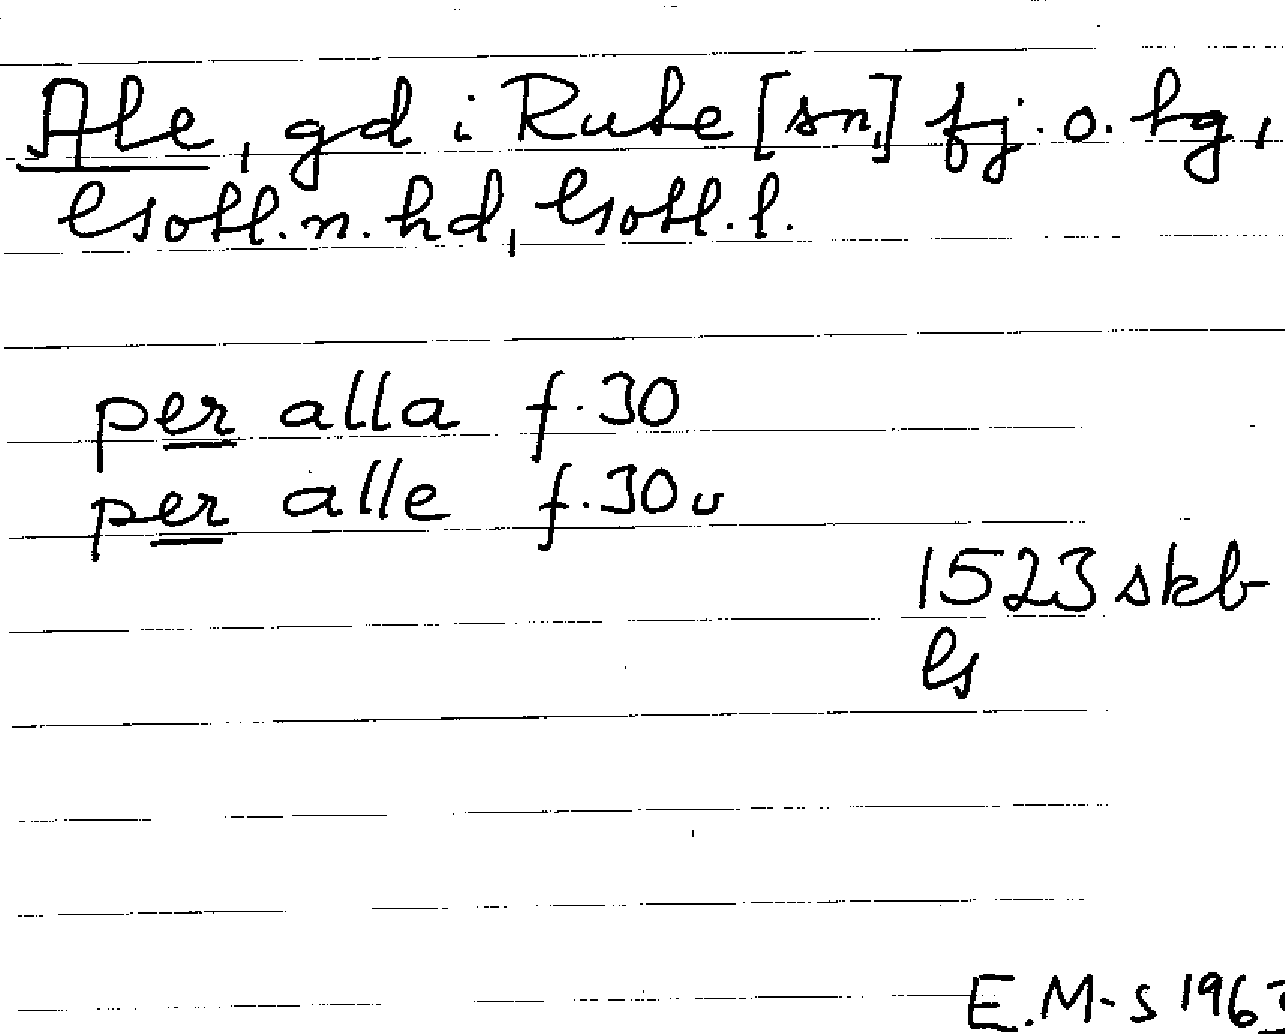 Ale, gd i Rute [sn,] fj. o. tg,
Gotl. n. hd, Gotl. l.
per alla f. 30
per alle f. 30 v
1523 skb
G
E. M-s 1963